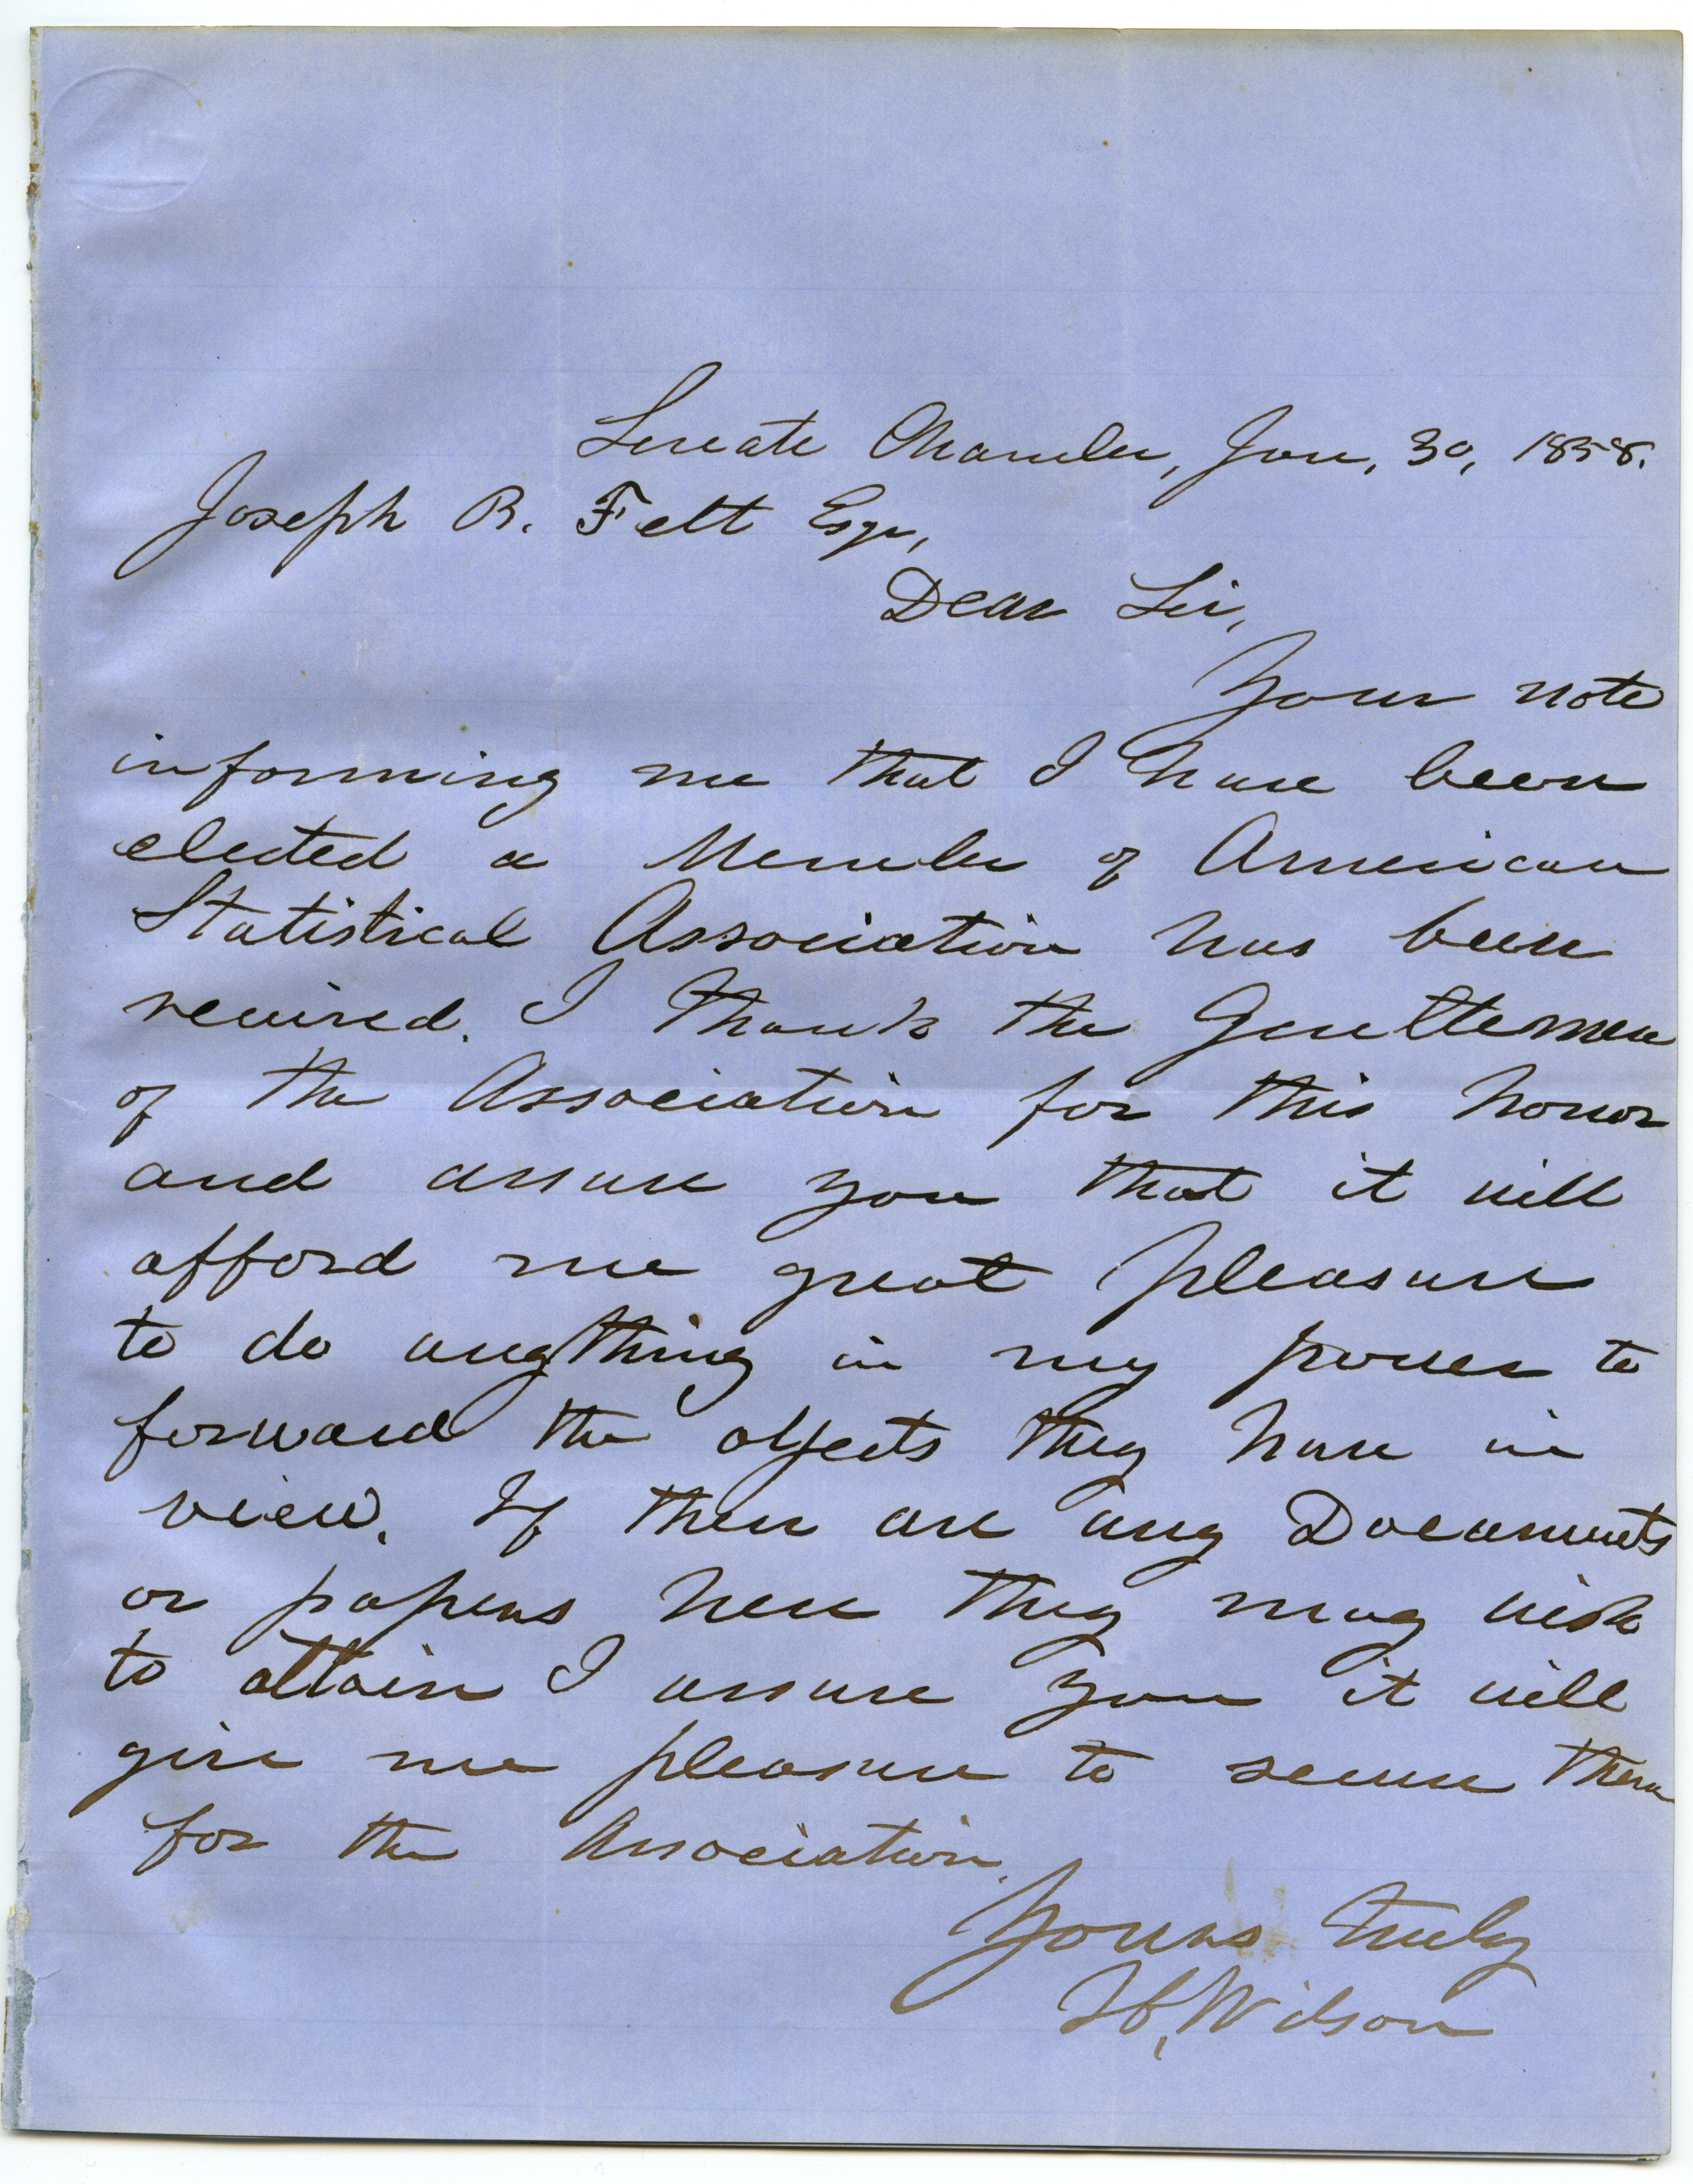 Senate Chamber, Jan, 30, 1858.
Joseph B. Felt Esqr,
Dear Sir,
Your note
informing me that I have been
elected a Member of American
Statistical Association has been
received. I thank the Gentlemen
of the Association for this honor
and assure you that it will
afford me great pleasure
to do anything in my power to
forward the objects they have in
view. If there are any Documents
or papers here they may wish
to attain I assure you it will
give me pleasure to secure them
for the Association.
Yours truly
H. Wilson